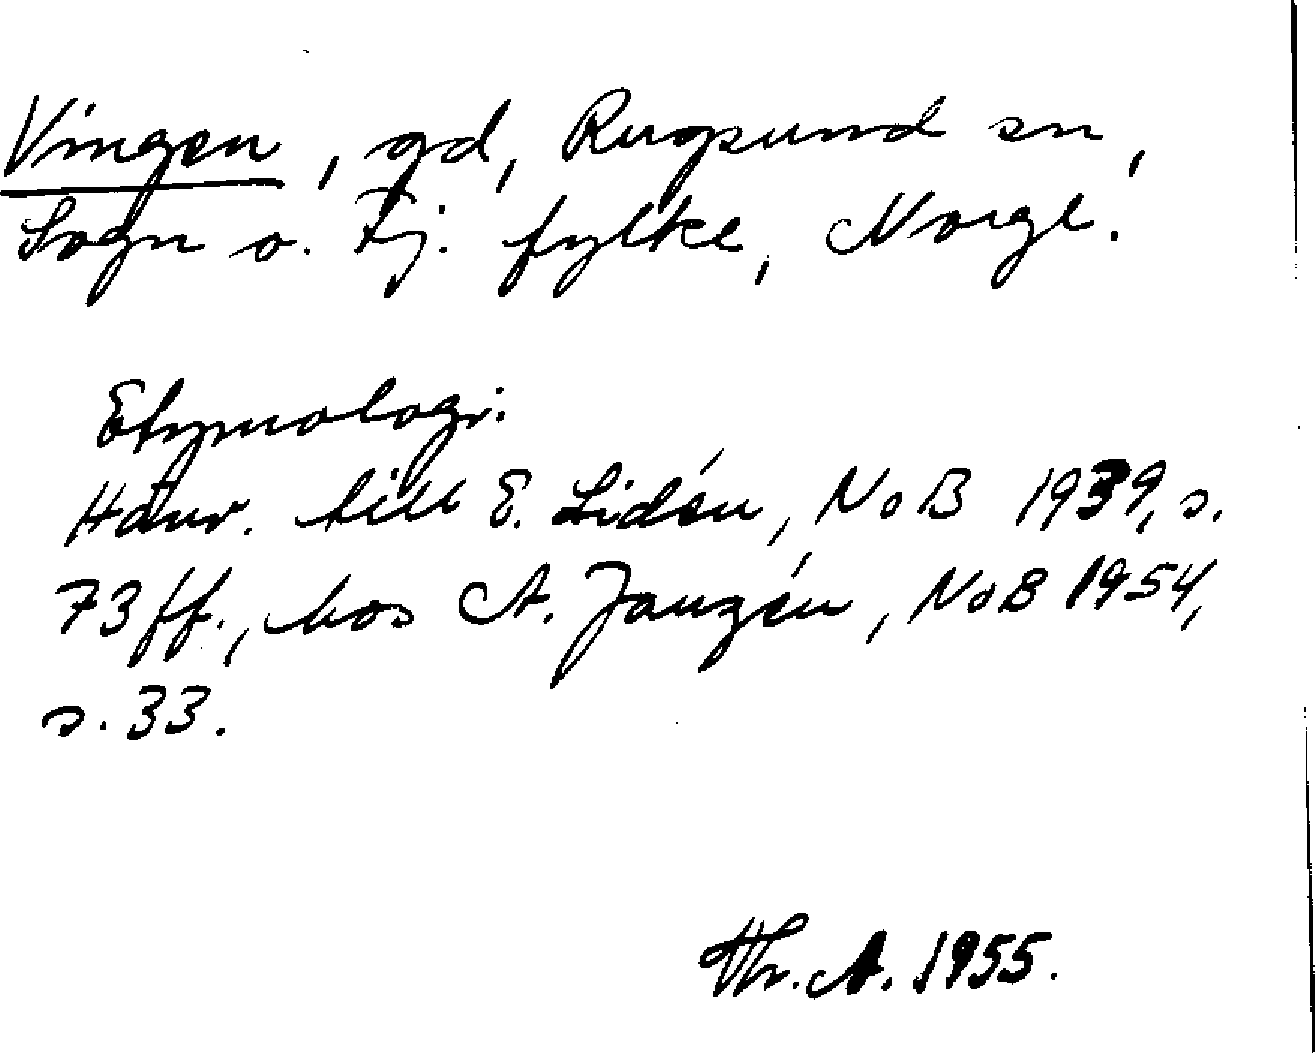 Vingen, gd, Rugsund sn,
Sogn o. Fj. fylke, Norge.
Etymologi.
Hänv. till E. Lidén, NoB 1939, s.
73 ff., hos A. Janzén, NoB 1954,
s. 33.
Th. A. 1955.